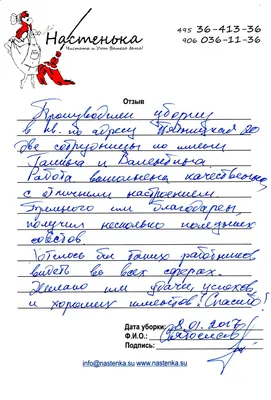 Настенька
Чистота и Уют Вашего дома!
495 36-413-36
906 036-11-36
Отзыв
Производили уборку
в кв. по адресу Пятницкая 20
две сотрудницы по имени
Галина и Валентина.
Работа выполнена качественно,
с отличным настроением.
Премного им благодарен,
получил несколько полезных
советов.
Хотелось бы таких работников
видеть во всех сферах.
Желаю им удачи, успехов,
и хороших клиентов! Спасибо!
Дата уборки: 8.01.2017г
Ф.И.О.:
Подпись:
info@nastenka.su www.nastenka.su